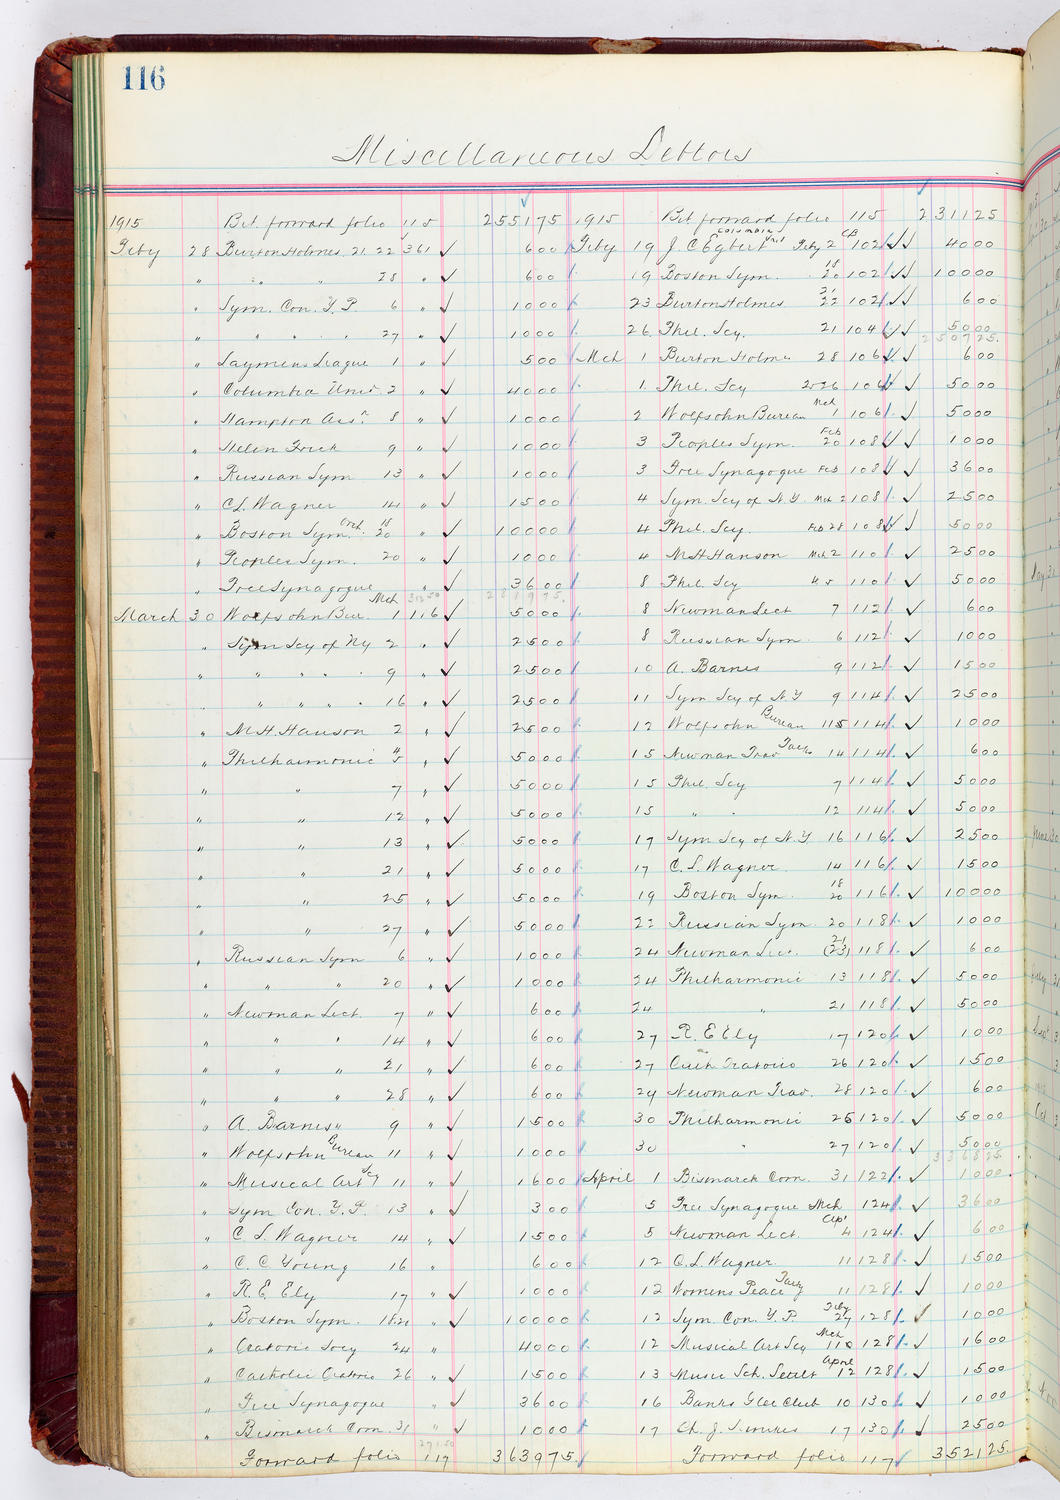 116
Miscellaneous Debtors
1915 Bt. forward folio 115 255175
Feby 28 Burton Holmes 21. 22 361 ✓ 600
" " " 28 " ✓ 600
" Sym. Con. Y. P. 6 " ✓ 1000
" " " " 27 " ✓ 1000
" Laymens League 1 " ✓ 500
" Columbia Univ. 2 " ✓ 4000
" Hampton Assn. 8 " ✓ 1000
" Helen Frick 9 " ✓ 1000
" Russian Sym 13 " ✓ 1000
" C. L. Wagner 14 " ✓ 1500
" Boston Sym. Orch. 18 20 " ✓ 10000
" Peoples Sym. 20 " ✓ 1000
" Free Synagogue " ✓ 3600
281975.
March 30 Wolfsohn Bur. Mch 1 116 ✓ 5000
" Sym Scy of Ny 2 " ✓ 2500
" " " " " 9 " ✓ 2500
" " " " " 16 " ✓ 2500
" M. H. Hanson 2 " ✓ 2500
" Philharmonic 4 5 " ✓ 5000
" " 7 " ✓ 5000
" " 12 " ✓ 5000
" " 13 " ✓ 5000
" " 21 " ✓ 5000
" " 25 " ✓ 5000
" " 27 " ✓ 5000
" Russian Sym 6 " ✓ 1000
" " " 20 " ✓ 1000
" Newman Lect. 7 " ✓ 600
" " " 14 " ✓ 600
" " " 21 " ✓ 600
" " " 28 " ✓ 600
" A. Barnes " 9 " ✓ 1500
" Wolfsohn Bureau 11 " ✓ 1000
" Musical Art Scy 11 " ✓ 1600
" Sym Con. Y. P. 13 " ✓ 300
" C. L. Wagner 14 " ✓ 1500
" C. C. Young 16 " 600
" R. E. Ely 17 " ✓ 1000
" Boston Sym. 18.20 " ✓ 10000
" Oratorio Socy 24 " 4000
" Catholic Oratorio 26 " ✓ 1500
" Free Synagogue " ✓ 3600
" Bismarck Com. 31 " ✓ 1000
Forward folio 117 363975
1915 Bt. forward folio 115 231125
Feby 19 J. C. Egbert Columbia Unit Feby 2 CB 102 ✓✓ 4000
19 Boston Sym. 18 20 102 ✓✓ 10000
23 Burton Holmes 21 22 102 ✓✓ 600
26 Phil. Scy. 21 104 ✓✓ 5000
250725.
Mch 1 Burton Holmes 28 106 ✓✓ 600
1. Phil. Scy 106 ✓✓ 5000
2 Wolfsohn Bureau Mch 1 106 ✓ 5000
3 Peoples Sym. Feb 20 108 ✓✓ 1000
3 Free Synagogue Feb 108 ✓✓ 3600
4 Sym. Scy of N. Y. Mch 2 108 ✓ 2500
4 Phil. Scy. Feb 28 108 ✓✓ 5000
4 M H Hanson Mch 2 110 ✓ 2500
8 Phil. Scy 4.5 110 ✓ 5000
8 Newman Lect 7 112 ✓ 600
8 Russian Sym. 6 112 1000
10 A. Barnes 9 112 ✓ 1500
11 Sym Scy of N. Y 9 114 ✓ 2500
12 Wolfsohn Bureau 115 114 ✓ 1000
15 Newman Trav Talk 14 114 ✓ 600
15 Phil. Scy 7 114 ✓ 5000
15 " " 12 114 ✓ 5000
17 Sym Scy of N. Y. 16 116 ✓ 2500
17 C. L. Wagner 14 116 ✓ 1500
19 Boston Sym. 18 20 116 ✓ 10000
22 Russian Sym. 20 118 ✓ 1000
24 Newman Lect. 21 (23) 118 ✓ 600
24 Philharmonic 13 118 ✓ 5000
24 " 21 118 ✓ 5000
27 R. E Ely 17 120 ✓ 1000
27 Cath Oratorio 26 120 ✓ 1500
29 Newman Trav. 28 120 ✓ 600
30 Philharmonic 25 120 ✓ 5000
30 " 27 120 ✓ 5000
336825.
April 1 Bismarck Com. 31 122 ✓ 1000
5 Free Synagogue Mch 124 ✓ 3600
5 Newman Lect. Apl 4 124 ✓ 600
12 C. L. Wagner 11 128 ✓ 1500
12 Womens Peace Party 11 128 ✓ 1000
12 Sym. Con. Y. P. Feby 27 128 ✓ 1000
12 Musical Art Scy Mch 110 128 ✓ 1600
13 Music Sch. Settlt April 12 128 ✓ 1500
16 Banks Glee Club 10 130 ✓ 1000
17 17 130 ✓ 2500
Forward folio 117 352125